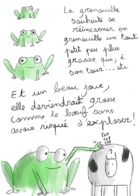 La grenouille
souhaite se
réincarner en
grenouille un tout
petit peu plus
grosse que,
son tour... etc
Et un beau jour,
elle deviendrait grosse
comme le bœuf sans
avoir risqué d'exploser!